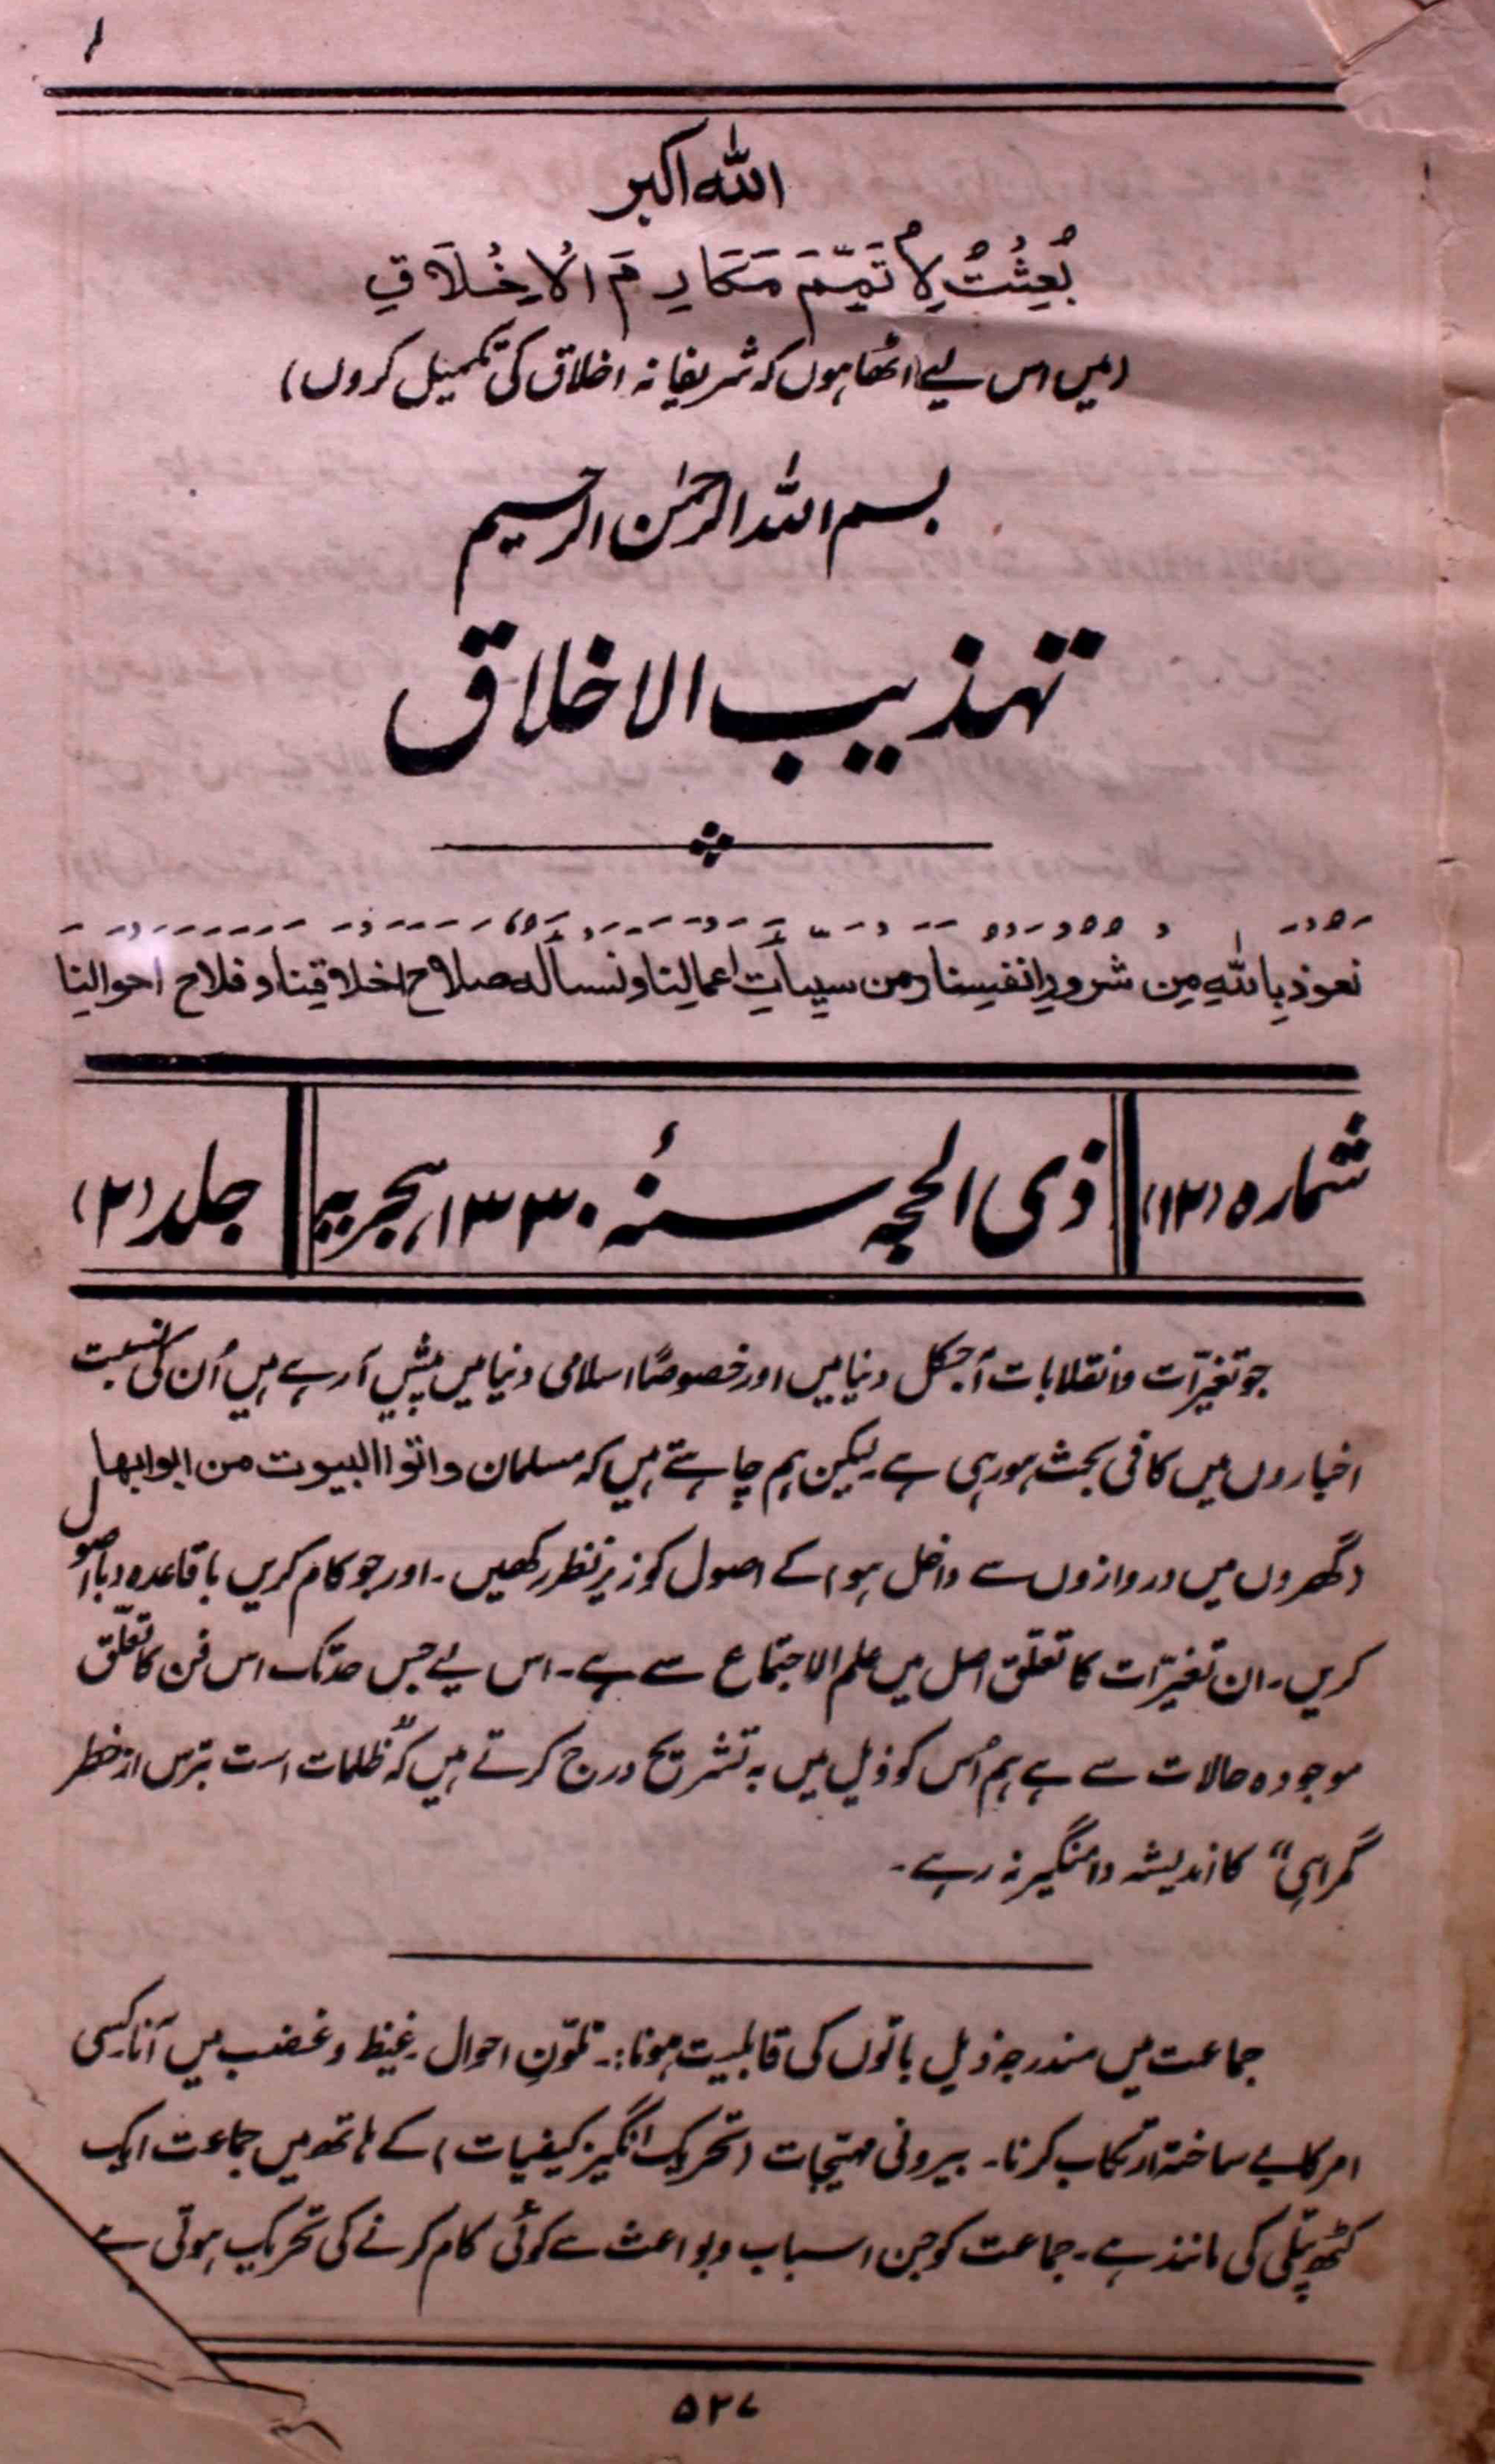 الله اکبر
بُعِثْتُ لِأُتَمِّمَ مَكَارِمَ الْاَخْلَاقِ
(میں اس لیے اٹھا ہوں کہ شریفانہ اخلاق کی تکمیل کروں)
بسم اللہ الرحمٰن الرحیم
تہذیب الاخلاق
نعوذ باللّٰہِ مِن شرورِ انفسِنا ومن سیِّاٰتِ اعمالِنا ونسألہ صلاح اخلاقِنا و فلاح احوالِنا
شمارہ (۱۲) ذی الحجہ سنہ ۱۳۳۰ ہجریہ جلد (۲)
جو تغیرّات و انقلابات آجکل دنیا میں اور خصوصًا اسلامی دنیا میں پیش آ رہے ہیں اُن کی نسبت
اخباروں میں کافی بحث ہو رہی ہے۔ لیکن ہم چاہتے ہیں کہ مسلمان واتوا البیوت من ابوابھا
(گھروں میں دروازوں سے داخل ہو) کے اصول کو زیر نظر رکھیں۔ اور جو کام کریں باقاعدہ و بااصول
کریں۔ ان تغیرّات کا تعلق اصل میں علم الاجتماع سے ہے۔ اس لیے جس حد تک اس فن کا تعلّق
موجودہ حالات سے ہے ہم اُس کو ذیل میں بہ تشریح درج کرتے ہیں کہ "ظلمات است بترس از خطر
گمراہی" کا اندیشہ دامنگیر نہ رہے۔
جماعت میں مندرجہ ذیل باتوں کی قابلیت ہونا:۔ تلوّنِ احوال۔ غیظ و غضب میں آنا۔ کسی
امر کا بے ساختہ ارتکاب کرنا۔ بیرونی مہیّجات (تحریک انگیز کیفیات) کے ہاتھ میں جماعت ایک
کٹھ پتلی کی مانند ہے۔ جماعت کو جن اسباب و بواعث سے کوئی کام کرنے کی تحریک ہوتی ہے
۵۲۷